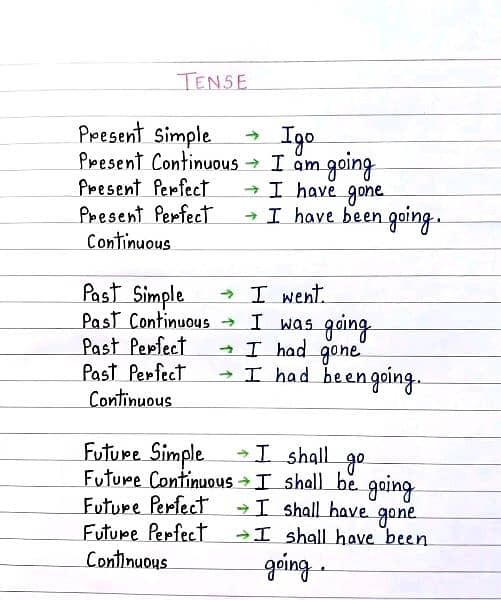 TENSE
Present Simple → Igo
Present Continuous → I am going
Present Perfect → I have gone
Present Perfect → I have been going.
Continuous
Past Simple → I went.
Past Continuous → I was going
Past Perfect → I had gone
Past Perfect → I had been going.
Continuous
Future Simple → I shall go
Future Continuous → I shall be going
Future Perfect → I shall have gone
Future Perfect → I shall have been
Continuous going.